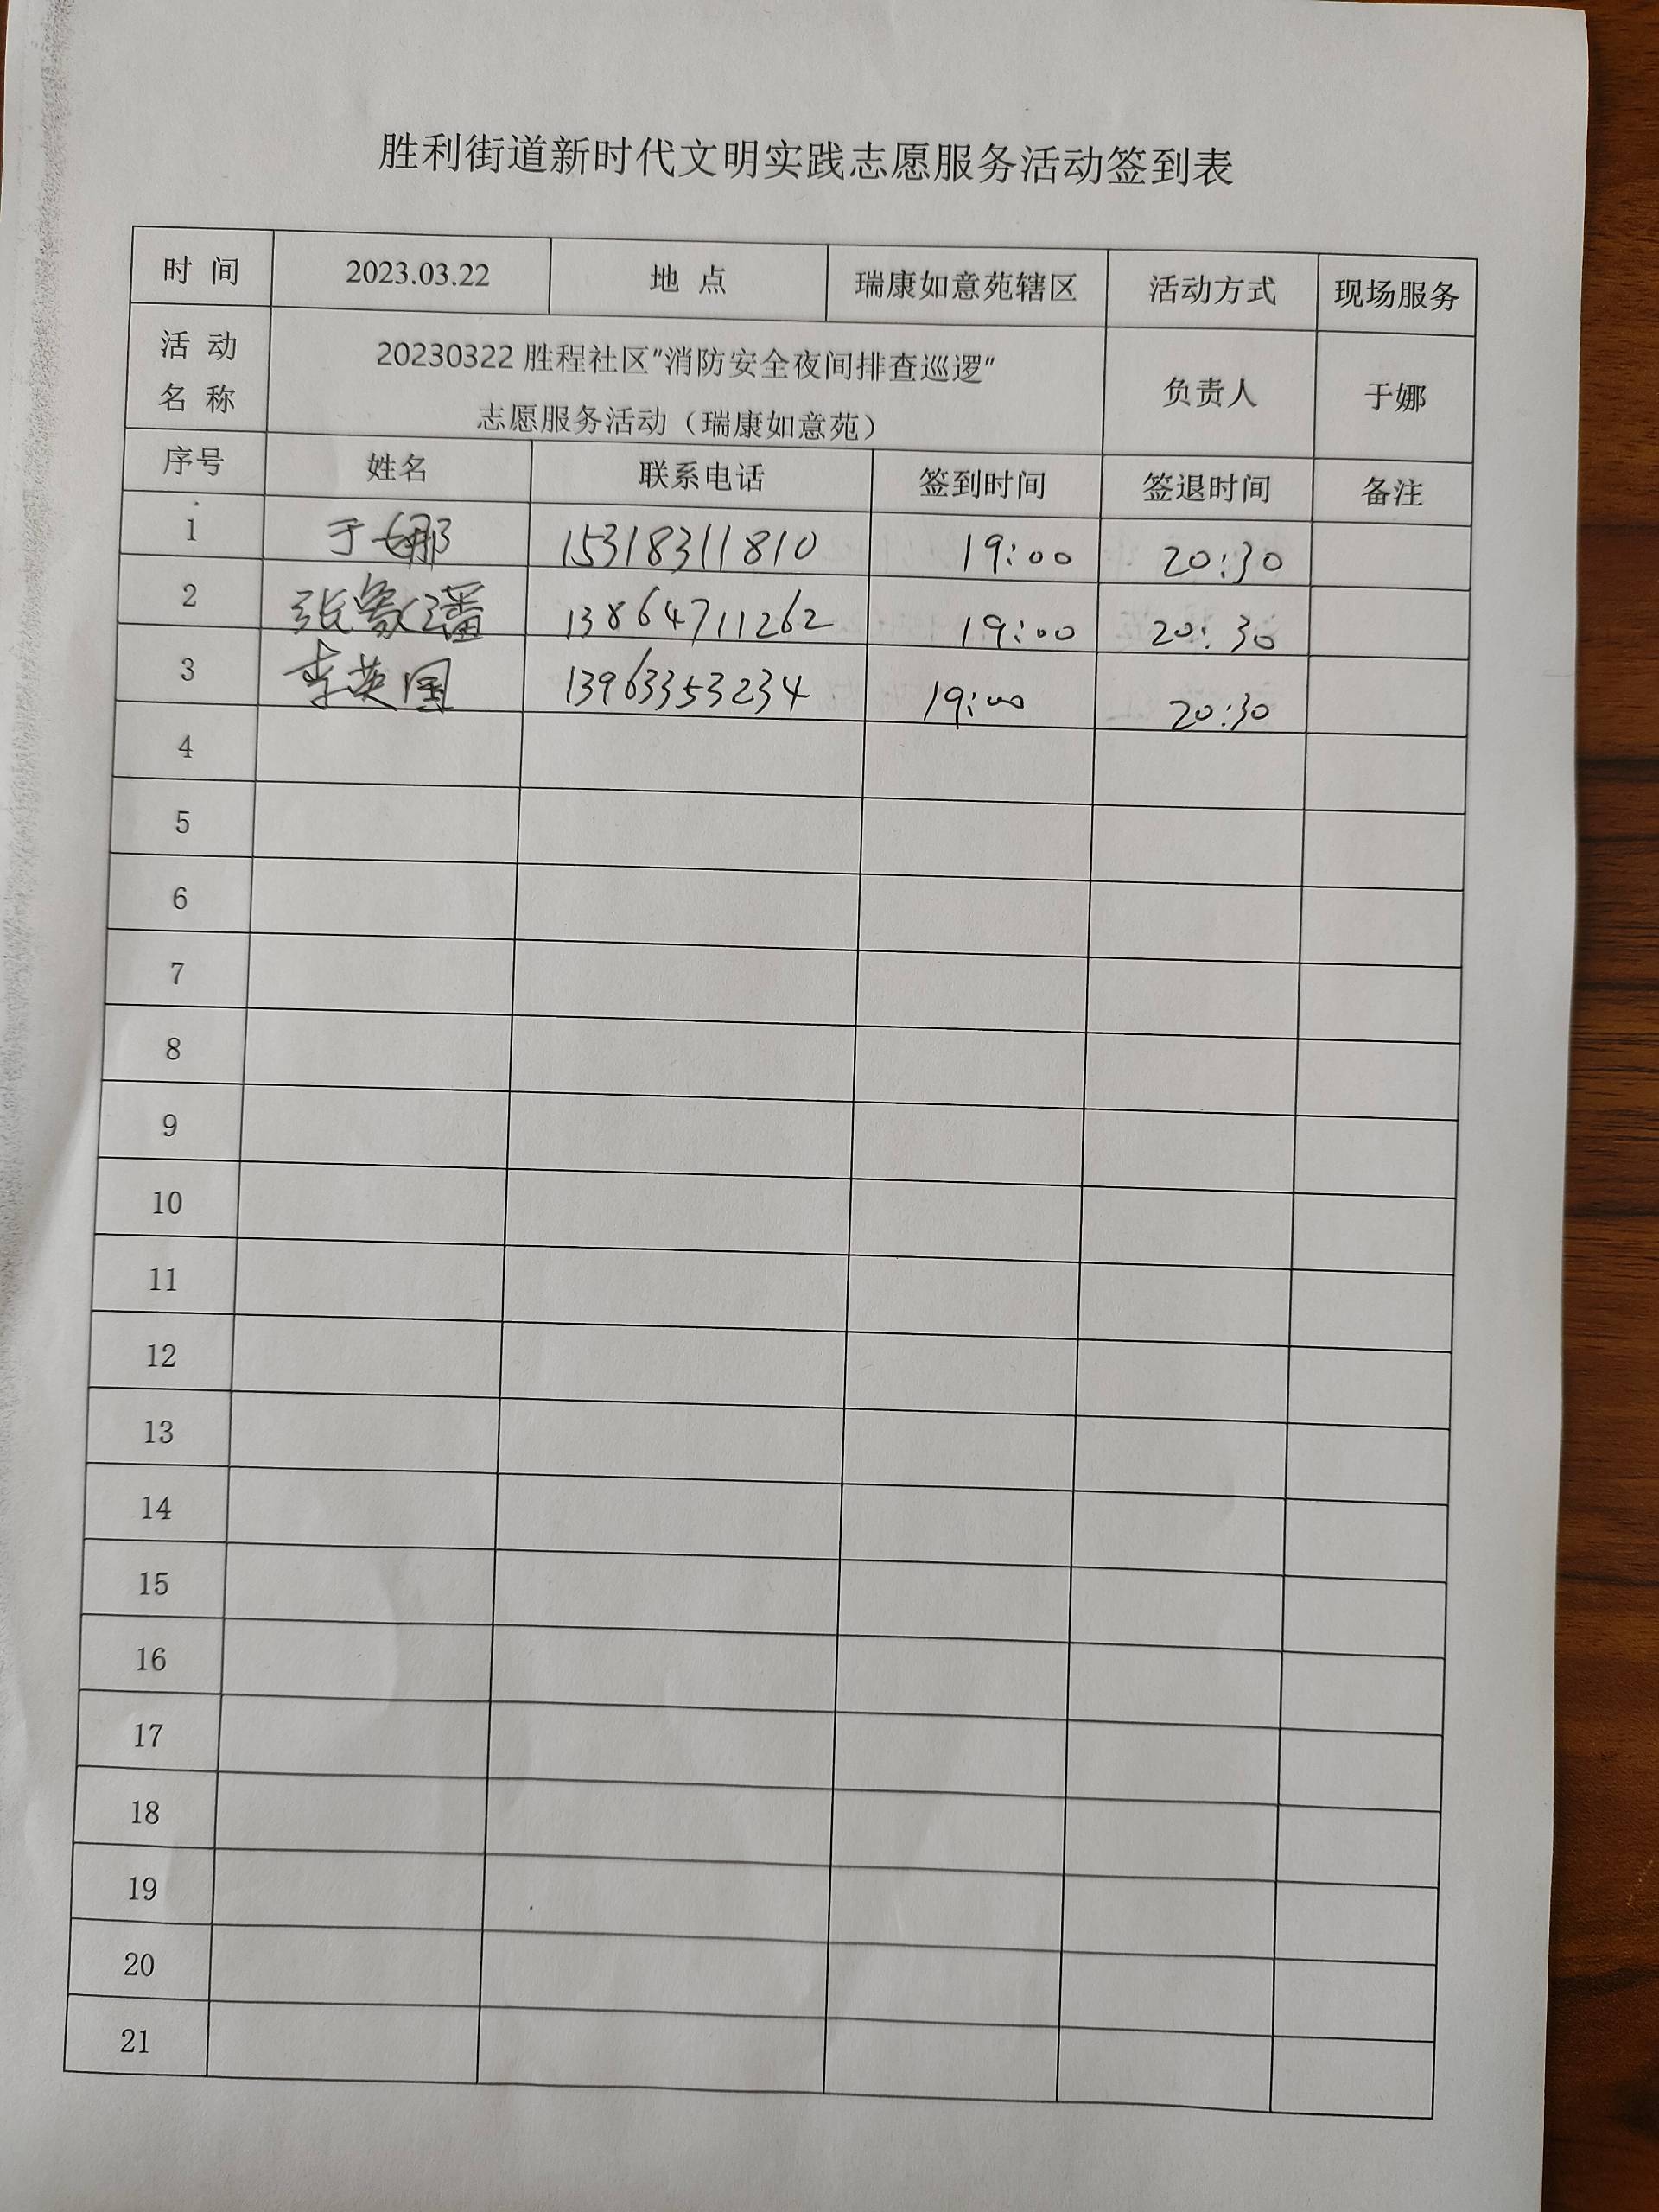 胜利街道新时代文明实践志愿服务活动签到表
时 间 2023.03.22 地 点 瑞康如意苑辖区 活动方式 现场服务
活 动 名 称 20230322 胜程社区"消防安全夜间排查巡逻" 负责人 于娜
志愿服务活动（瑞康如意苑）
序号 姓名 联系电话 签到时间 签退时间 备注
1 于娜 15318311810 19:00 20:30
2 张 13864711262 19:00 20:30
3 李英国 13963353234 19:00 20:30
4
5
6
7
8
9
10
11
12
13
14
15
16
17
18
19
20
21